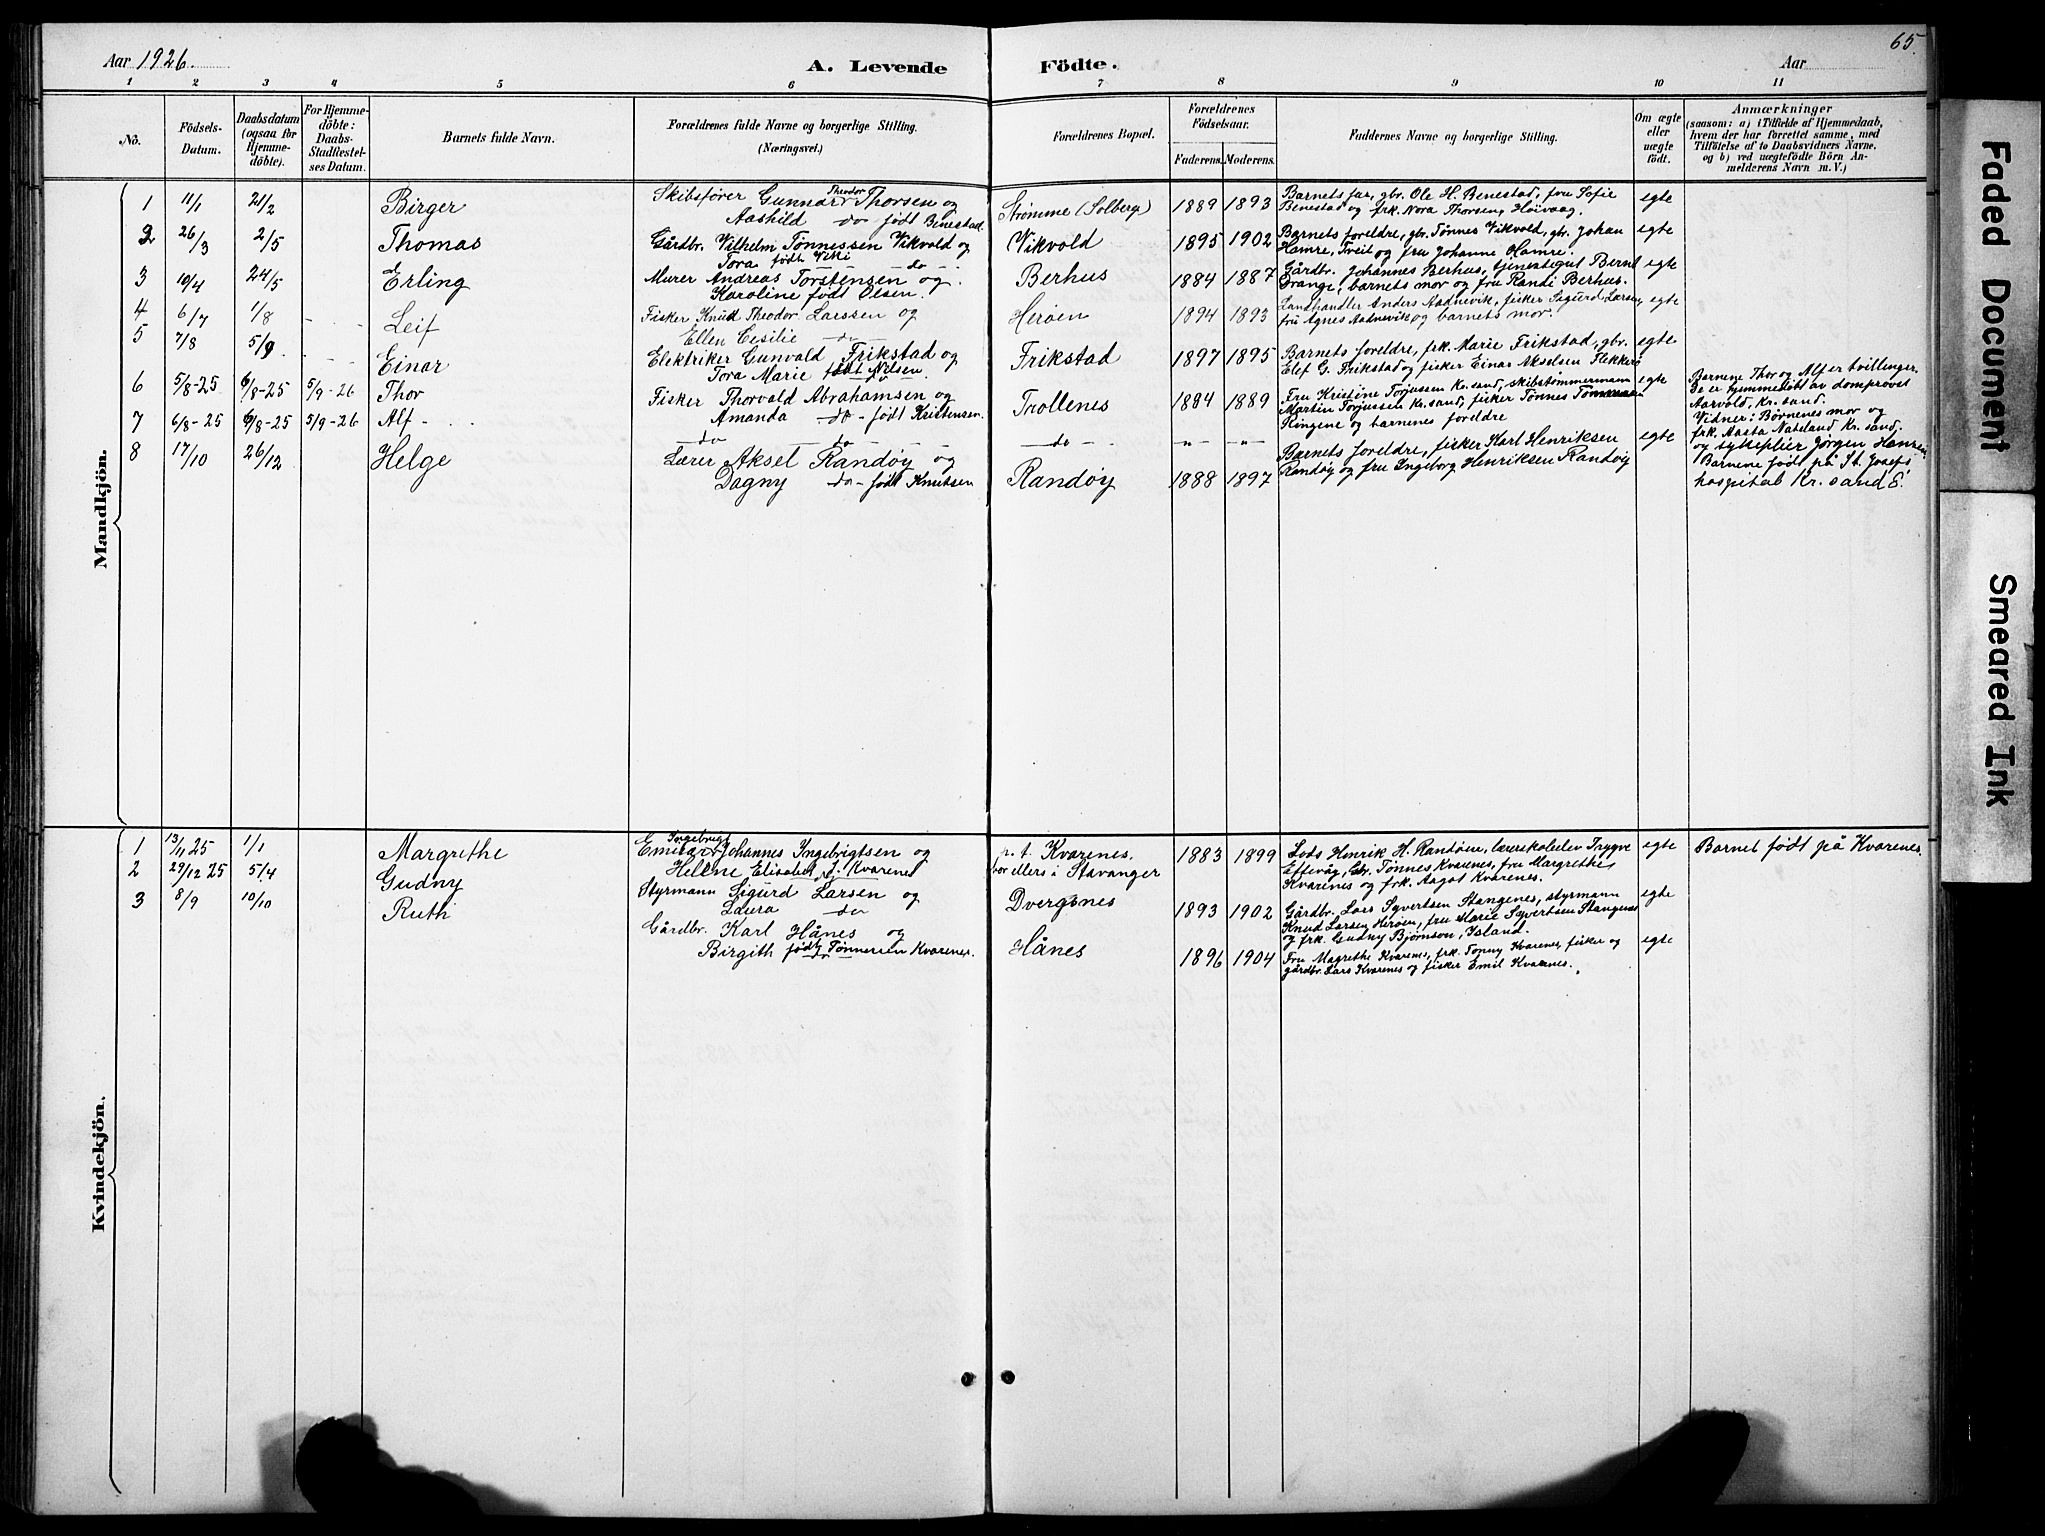 65.
Aar 1926.
A. Levende Födte.
Aar
1 2 3 4 5 6 7 8 9 10 11
No.
Födsels-Datum.
Daabsdatum (ogsaa for Hjemme-döbte).
For Hjemme-döbte: Daabs-Stadfæstel-ses Datum.
Barnets fulde Navn.
Forældrenes fulde Navne og borgerlige Stilling. (Næringsvei.)
Forældrenes Bopæl.
Forældrenes Födselsaar.
Faderens. Moderens.
Faddernes Navne og borgerlige Stilling.
Om ægte eller uægte födt.
Anmærkninger
(saasom: a) i Tilfælde af Hjemmedaab, hvem der har forrettet samme, med Tilföielse af to Daabsvidners Navne, og b) ved uægtefödte Börn An-melderens Navn m. V.)
Mandkjön.
1 11/1 21/2 Birger Skibsfører Gunnar Theodor Thorsen og Aashild do født Benestad. Strømme (Solberg) 1889 1893 Barnets far, gbr. Ole H. Benestad, fru Sofie Benestad og frk. Nora Thorsen, Høivaag. egte
2 26/3 2/5 Thomas Gårdbr. Vilhelm Tønnessen Vikvold og Tora født Viki do Vikvold 1895 1902 Barnets foreldre, gbr. Tønnes Vikvold, gbr. Johan Hamre, Tveit og fru Johanne Hamre. egte
3 10/4 24/5 Erling Murer Andreas Torstensen og Karoline født Olsen. Berhus 1884 1887 Gårdbr. Johannes Berhus, tjenestegut Bernt Drange, barnets mor og fru Randi Berhus. egte
4 6/7 1/8 - - Leif Fisker Knud Theodor Larssen og Ellen Cesilie do Herøen 1894 1893 Landhandler Anders Aadnevik, fisker Sigurd Larsen, fru Agnes Aadnevik og barnets mor. egte
5 7/8 5/9 - - Einar Elektriker Gunvald Frikstad og Tora Marie født Nilsen. Frikstad 1897 1895 Barnets foreldre, frk. Marie Frikstad, gbr. Elef G. Frikstad og fisker Einar Akselsen Flekkerø egte
6 5/8-25 6/8-25 5/9-26 Thor Fisker Thorvald Abrahamsen og Amanda do - født Kristensen. Trollenes 1884 1889 Fru Kristine Torjussen Kr.sand, skibstømmermann Martin Torjussen Kr.sand, fisker Tønnes Tønnessen Kingene og barnenes foreldre egte Barnene Thor og Alf er tvillinger. De er hjemmedøbt av domprovst Aarvold, Kr. sand. Vidner: Børnenes mor og frk. Aasta Nateland Kr. sand, og sykepleier Jørgen Hansen Barnene født på St. Josefs hospital Kr. sand S.
7 6/8-25 6/8-25 5/9-26 Alf - do - - do - - do - -"- -"-
8 17/10 26/12 Helge Lærer Aksel Randøy og Dagny do - født Knutsen Randøy 1888 1897 Barnets foreldre, fisker Karl Henriksen Randøy og fru Ingeborg Henriksen Randøy egte
Kvindekjön.
1 13/11 25 1/1 Margrethe Emil Ingebrigt Johannes Ingebrigtsen og Helene Elisabet f. Kvarenes p.t. Kvarenes, bor ellers i Stavanger 1883 1899 Lods Henrik H. Randøen, lærerskoleelev Trygve Eftevåg, Gbr. Tønnes Kvarenes, fru Margrethe Kvarenes og frk. Aagot Kvarenes. egte Barnet født på Kvarenes.
2 29/12 25 5/4 Gudny Styrmann Sigurd Larsen og Laura do Dvergsnes 1893 1902 Gårdbr. Lars Syvertsen Stangenes, styrmann Knud Larsen Herøen, fru Marie Syvertsen Stangenes og frk. Gudny Bjørnson, Island. egte
3 8/9 10/10 Ruth Gårdbr. Karl Hånes og Birgith født Tønnessen Kvarenes. Hånes 1896 1904 Fru Magrethe Kvarenes, frk. Tonny Kvarenes, fisker og gårdbr. Lars Kvarenes og fisker Emil Kvarenes. egte
Faded Document
Smeared Ink